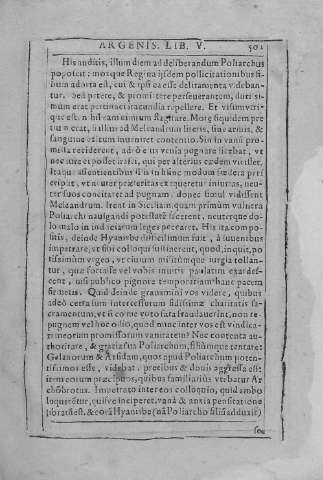 ARGENIS. LIB. V. 501
His auditis, illum diem ad deliberandum Poliarchus
poposcit: moxque Regina ijsdem pollicitationibus sibi
num adorta est, cui & ipsi ea esse deliramenta videban-
tur. Sed petere, & promittere perseverantem, durissi-
mum erat pertinaci iracundia repellere. Et visum utri-
que est,
erat, si illum ad Meleandrum literis, sine armis, &
sanguine vltum inueniret contentio. Sin in vanū pro-
missa cecidererent, ad eò ne vt venia pugnare licebat, vt
nec iure et posset irasci, qui per alterius cædem vicisset.
Itaque assentientibus illis in hūnc modum fœdera præ-
cripsit, vt neuter præteritas exqueretur iniurias, neu-
ter suos concitaret ad pugnam, donec simul vidissent
Meleandrum. Irent in Siciliam, quam primùm vulnera
Poliarchi nauigandi potestatē facerent, neuterque do-
lo malo in indiciarum leges peccaret. His ita compo-
sitis, deinde Hyanisbe difficillimum fuit, à iuuenibus
impetrare, vt sibi colloqui sustinerent, quod, inquit, po-
tissimùm vrgeo, vt ciuium militumque iurgia tollan-
tur, quæ fortasse vel vobis inuitis paulatim exardes-
cent, nisi publico pignore temporariam hanc pacem
firmetis. Quid deinde grauamini vos videre, quibus
adeò certa sum intercessorum fidissimæ charitatis sa-
cramentum, vt si come voto fata fraudauerint, non re-
pugnem vel hoc odio, quod nunc inter vos est vindica-
ri meorum promissorum vanitatem? Nec contenta au-
thoritate, & gratia sua Poliarchum, filiumque tentare:
Gelanorum & Arsidam, quos apud Poliarchum poten-
tissimos esse, videbat, precibus & donis aggressa est:
item eorum præcipuos, quibus familiariùs vtebatur Ar-
chombrotus. Impetrato inter eos colloquio, quid ambo
loquerētur, quisve inciperet, vana & anxia pensitatione
libratū est, & corā Hyanisbe (nā Poliarcho filiū adduxit)